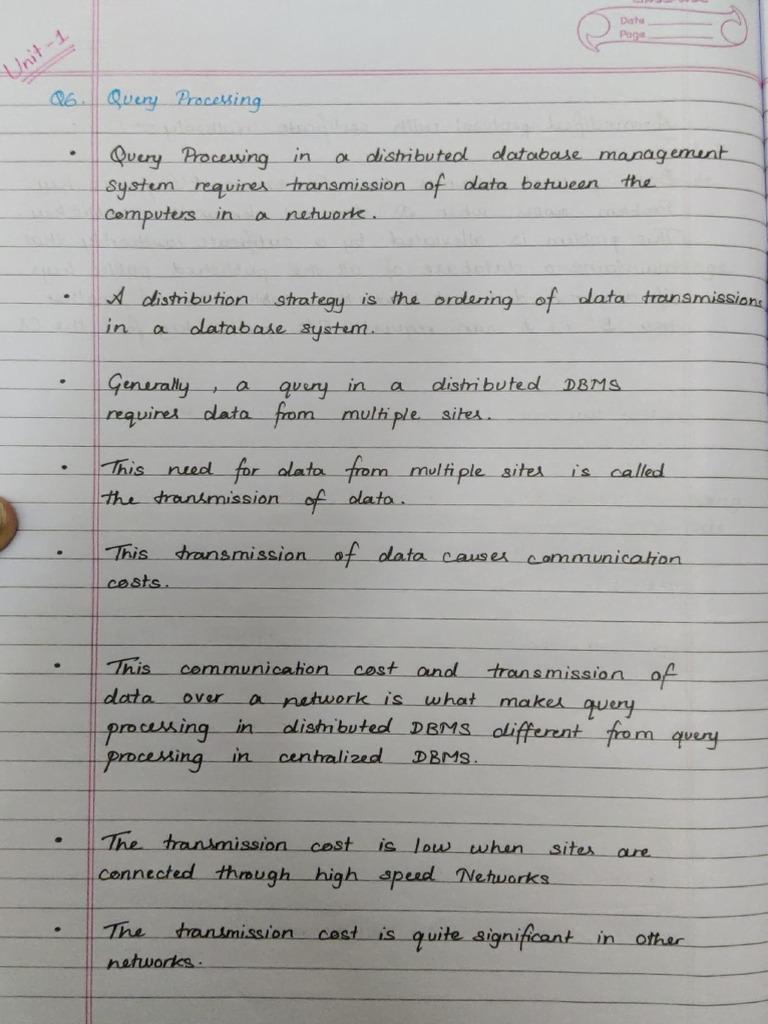 Unit-1
Date
Page
Q6. Query Processing
• Query Processing in a distributed database management
system requires transmission of data between the
computers in a network.
• A distribution strategy is the ordering of data transmissions
in a database system.
• Generally, a query in a distributed DBMS
requires data from multiple sites.
• This need for data from multiple sites is called
the transmission of data.
• This transmission of data causes communication
costs.
• This communication cost and transmission of
data over a network is what makes query
processing in distributed DBMS different from query
processing in centralized DBMS.
• The transmission cost is low when sites are
connected through high speed Networks
• The transmission cost is quite significant in other
networks.